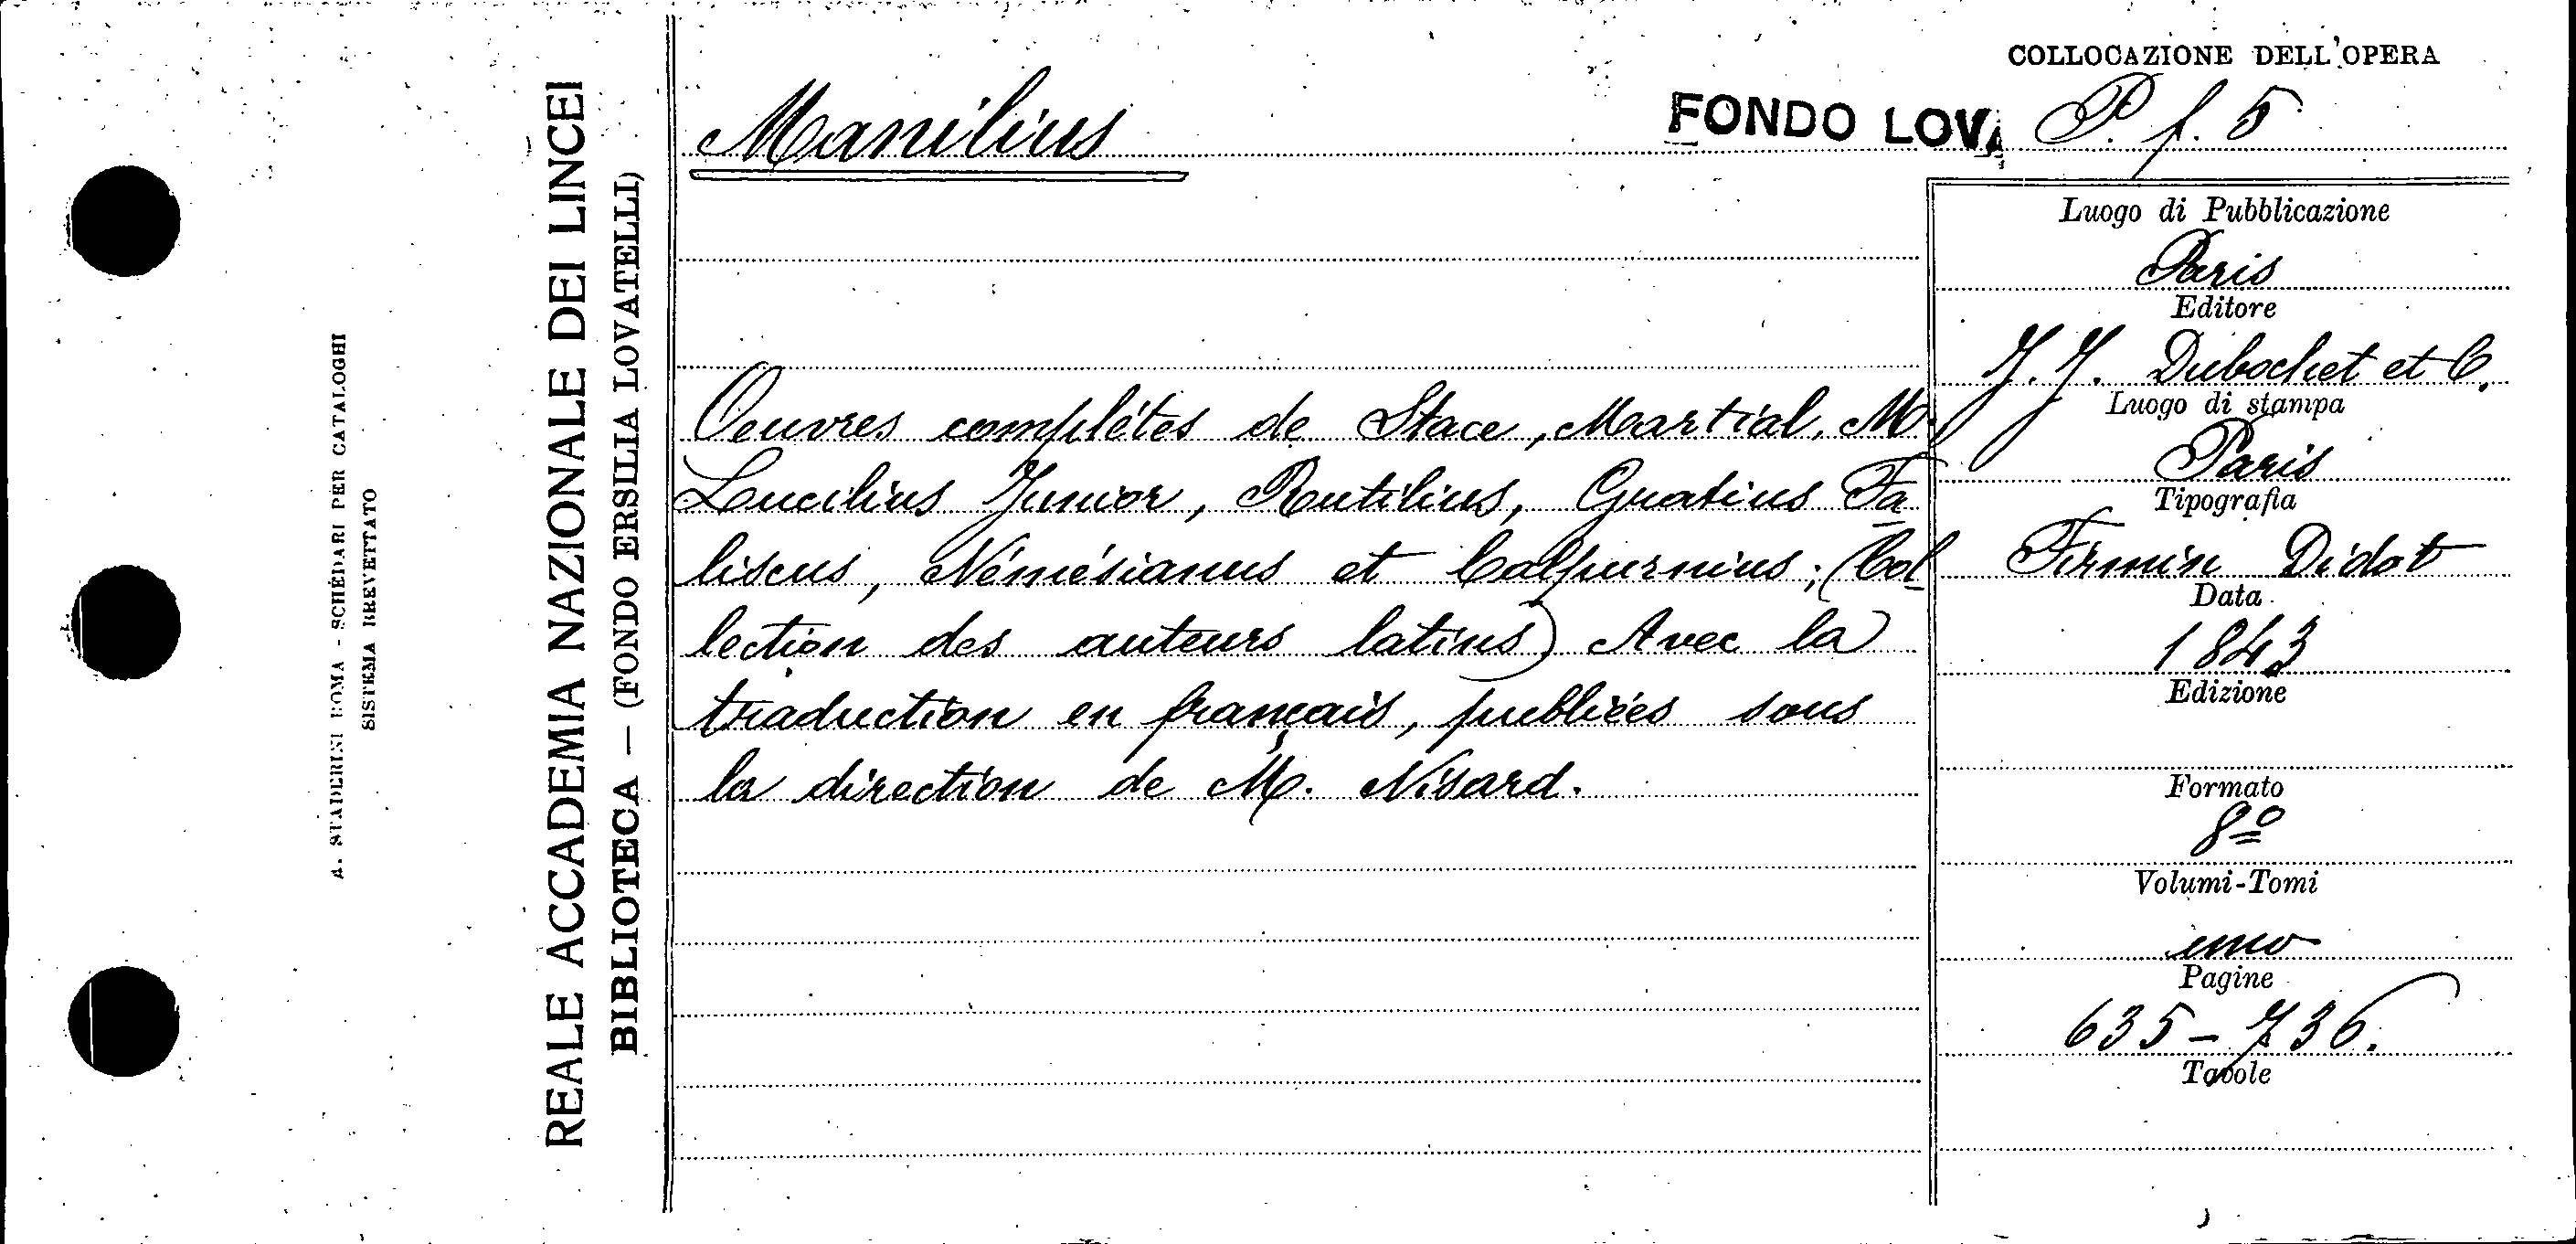 A. STADERINI ROMA - SCHEDARI PER CATALOGHI
SISTEMA BREVETTATO
REALE ACCADEMIA NAZIONALE DEI LINCEI
BIBLIOTECA — (FONDO ERSILIA LOVATELLI)
Manilius
Oeuvres complétes de Stace, Martial, M.
Lucilius Junior, Rutilius, Gratius Fa
liscus, Némésianus et Calpurnius; (Col
lection des auteurs latins) Avec la
traduction en français, publiées sous
la direction de M. Nisard.
COLLOCAZIONE DELL'OPERA
FONDO LOVA P. f. 5
Luogo di Pubblicazione
Paris
Editore
J. J. Dubochet et C.
Luogo di stampa
Paris
Tipografia
Firmin Didot
Data
1843
Edizione
Formato
8º
Volumi-Tomi
uno
Pagine
635-736.
Tavole